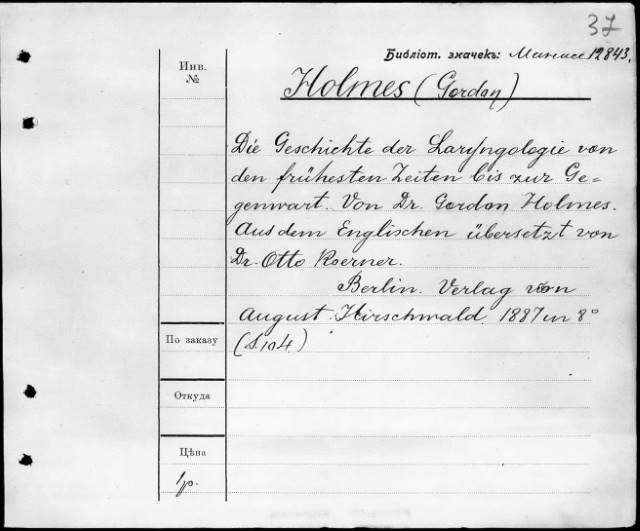 37
Библіот. значекъ: 12843.
Инв.
№
Holmes (Gordon)
Die Geschichte der Laryngologie von
den frühesten Zeiten bis zur Ge=
genwart. Von Dr. Gordon Holmes.
Aus dem Englischen übersetzt von
Dr. Otto Koerner.
Berlin. Verlag von
August Hirschwald. 1887 in 8°
По заказу
(S 104.)
Откуда
Цѣна
1р.